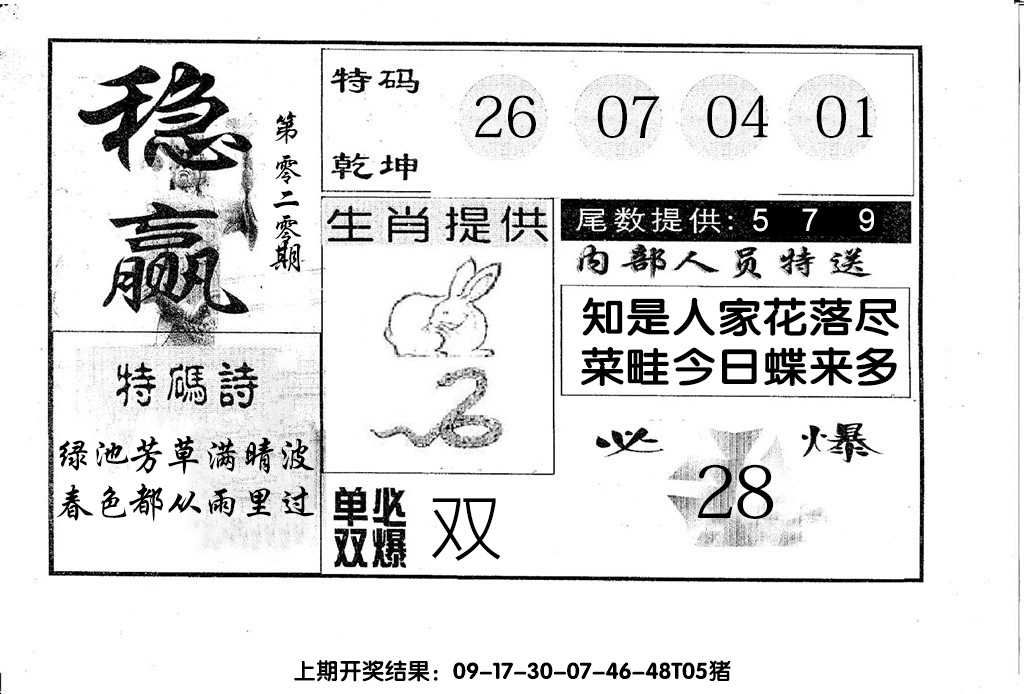 稳赢
第零二零期
特码
乾坤
26 07 04 01
生肖提供
尾数提供: 5 7 9
内部人员特送
知是人家花落尽
菜畦今日蝶来多
特碼詩
绿池芳草满晴波
春色都从雨里过
单双必爆
双
必爆
28
上期开奖结果：09-17-30-07-46-48T05猪